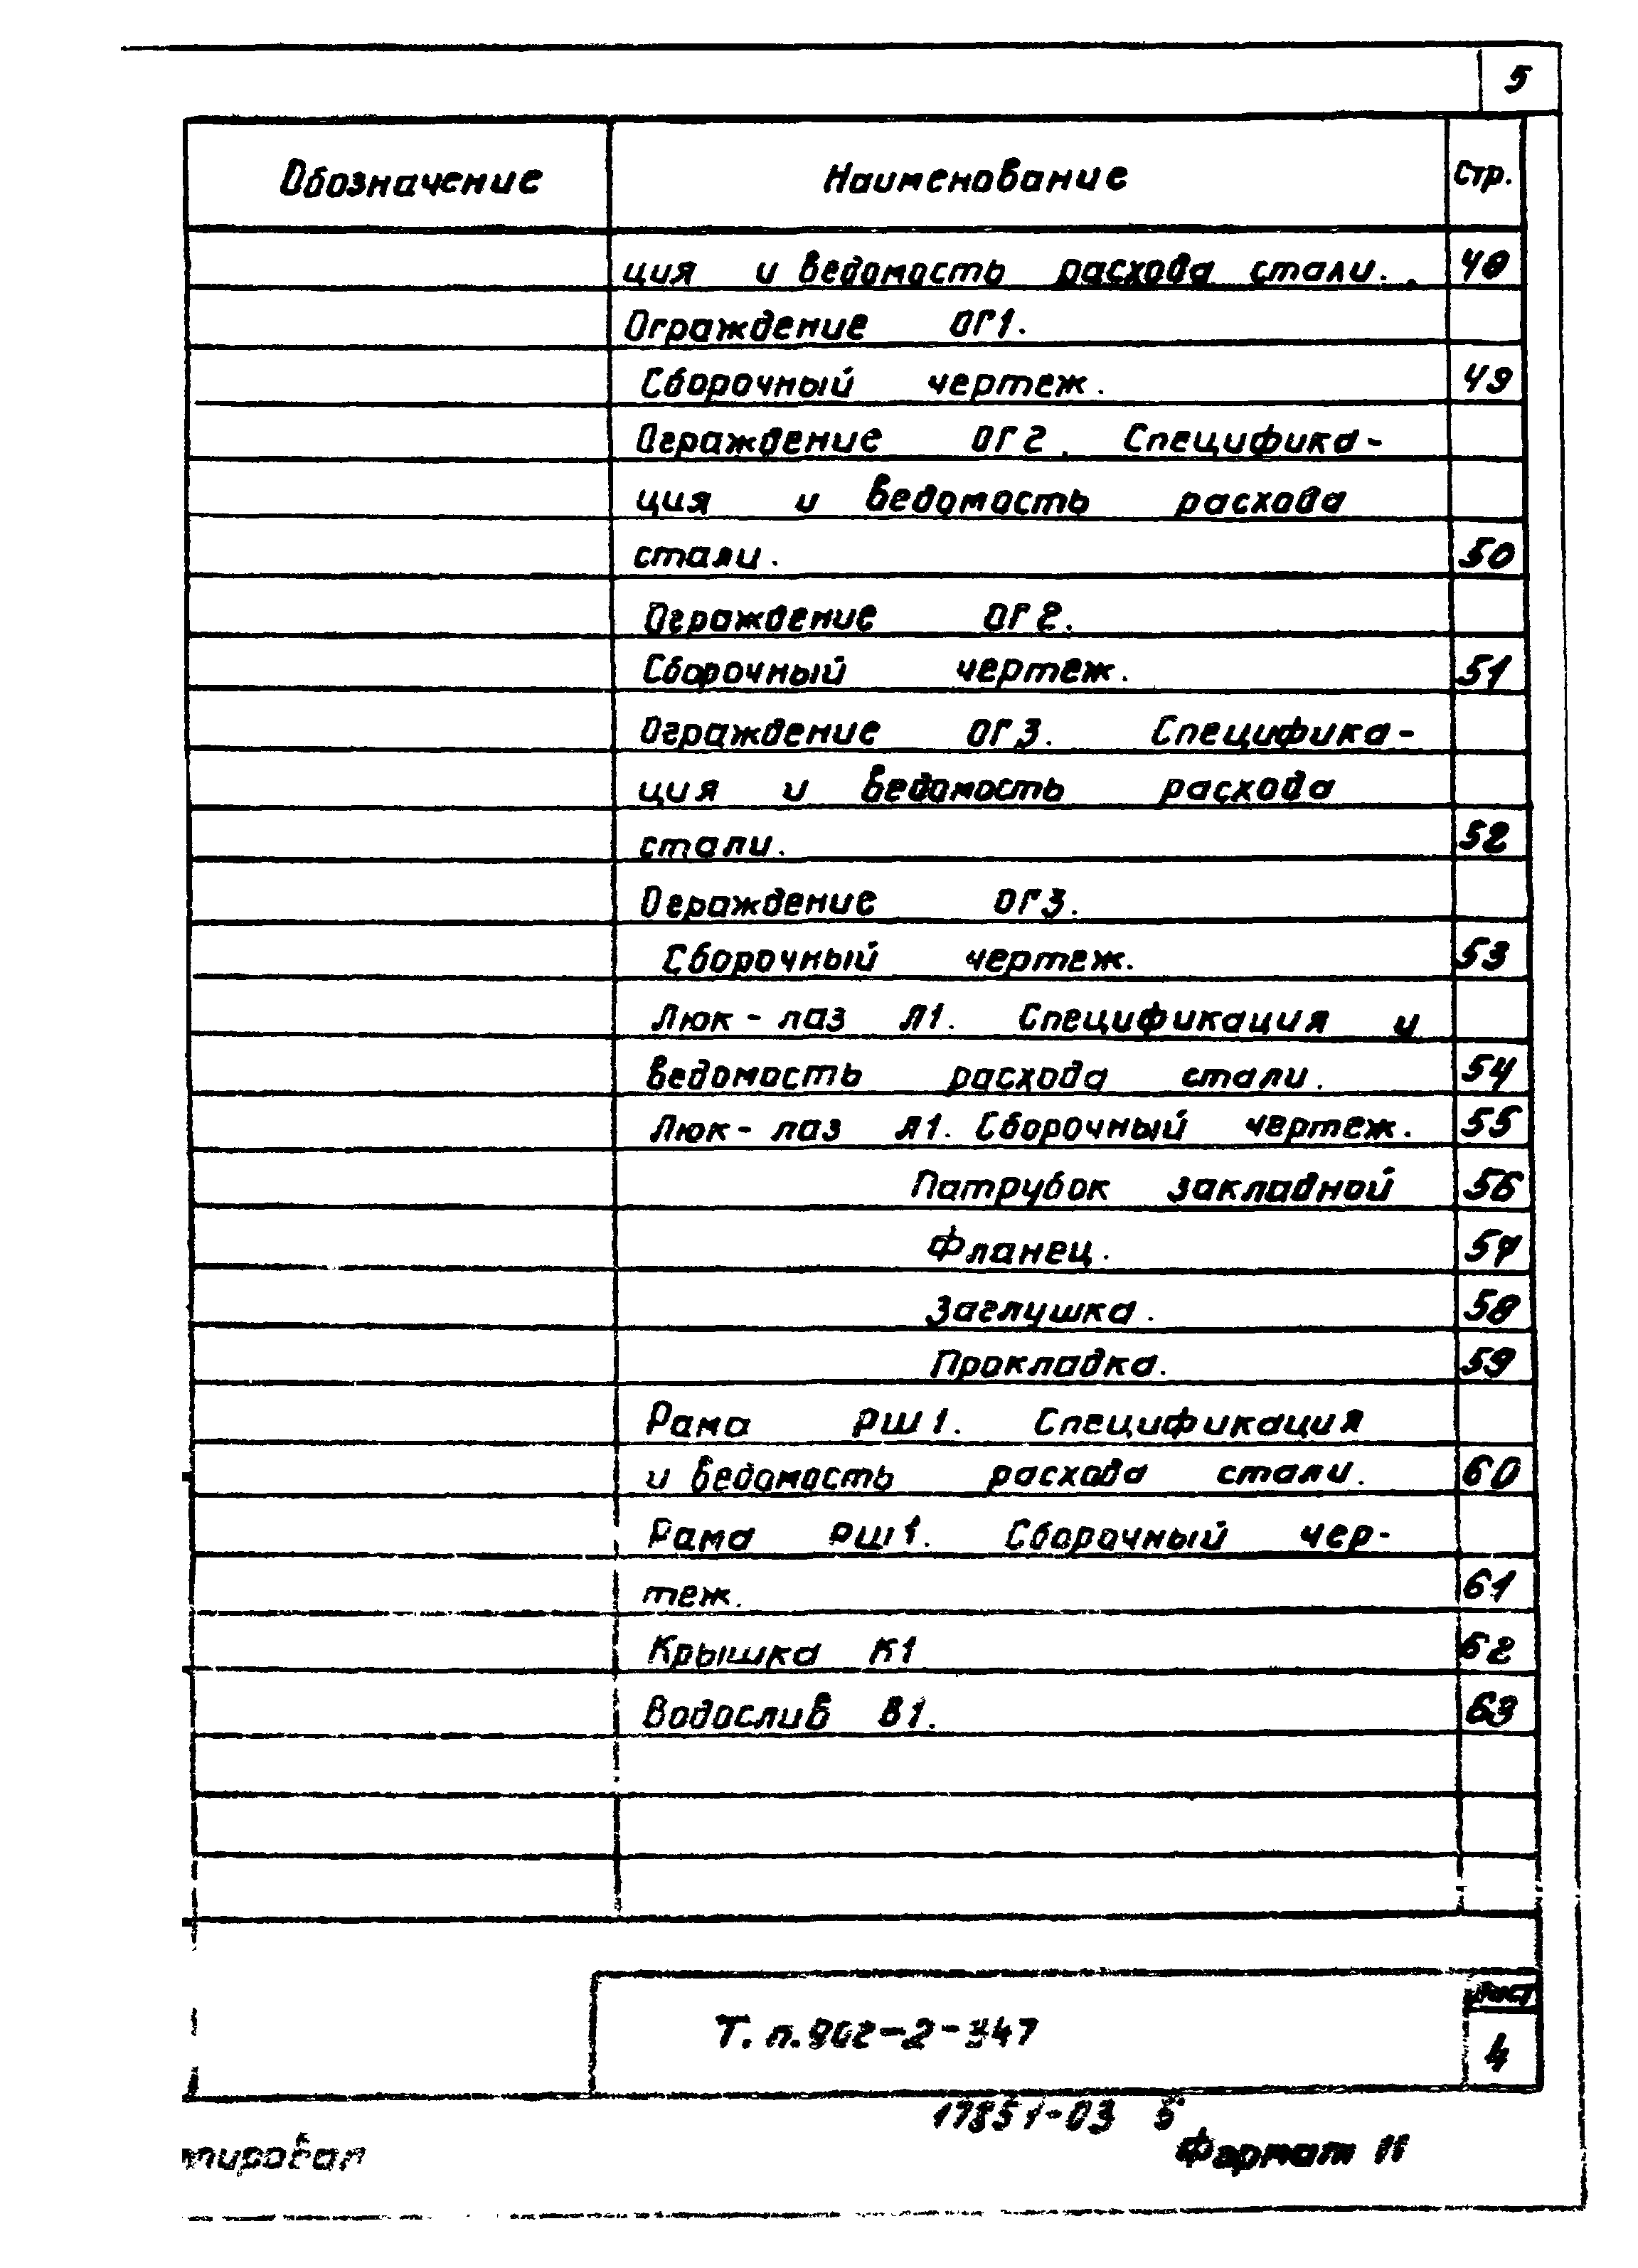 5
Обозначение Наименование Стр.
ция и ведомость расхода стали. 48
Ограждение ОГ1.
Сборочный чертеж. 49
Ограждение ОГ2. Специфика-
ция и ведомость расхода
стали. 50
Ограждение ОГ2.
Сборочный чертеж. 51
Ограждение ОГ3. Специфика-
ция и ведомость расхода
стали. 52
Ограждение ОГ3.
Сборочный чертеж. 53
Люк-лаз Л1. Спецификация и
ведомость расхода стали. 54
Люк-лаз Л1. Сборочный чертеж. 55
Патрубок закладной 56
Фланец. 57
Заглушка. 58
Прокладка. 59
Рама РШ1. Спецификация
и ведомость расхода стали. 60
Рама РШ1. Сборочный чер-
теж. 61
Крышка К1 62
Водослив В1. 63
Лист
Т.п.902-2-347
4
17851-03 5
тировал Формат 11